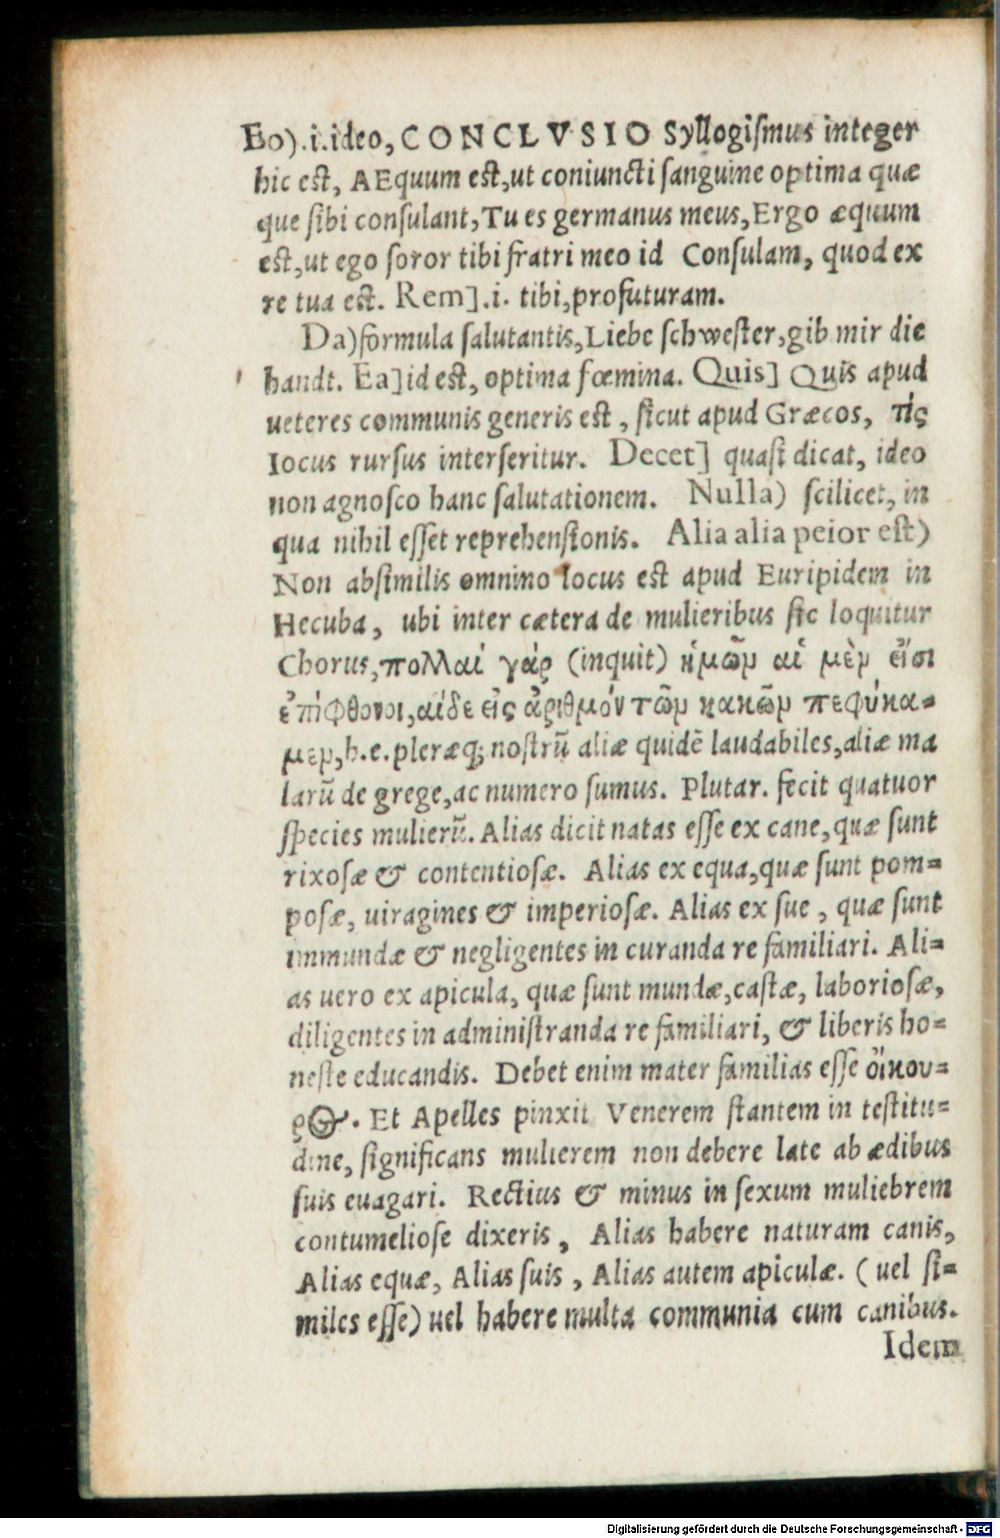 Eo).i.ideo, CONCLVSIO Syllogiſmus integer
hic eſt, AEquum eſt,ut coniuncti ſanguine optima quæ
que ſibi conſulant,Tu es germanus meus,Ergo æquum
eſt,ut ego ſoror tibi fratri meo id Conſulam, quod ex
re tua eſt. Rem].i. tibi,profuturam.
Da)formula ſalutantis,Liebe ſchweſter,gib mir die
handt. Ea]id eſt, optima fœmina. Quis] Quis apud
ueteres communis generis eſt, ſicut apud Græcos, τίς
Iocus rurſus interſeritur. Decet] quaſi dicat, ideo
non agnoſco hanc ſalutationem. Nulla) ſcilicet, in
qua nihil eſſet reprehenſionis. Alia alia peior eſt)
Non abſimilis omnino locus eſt apud Euripidem in
Hecuba, ubi inter cætera de mulieribus ſic loquitur
Chorus,πολλαί γάρ (inquit) ἡμῶν αἱ μὲν εἴσι
ἐπίφθονοι,αἱδε εἰς ἀριθμόν τῶν κακῶν πεφύκα-
μεν,h.e.pleræq; noſtrū aliæ quidē laudabiles,aliæ ma
larū de grege,ac numero ſumus. Plutar. fecit quatuor
ſpecies mulierū. Alias dicit natas eſſe ex cane,quæ ſunt
rixoſæ & contentioſæ. Alias ex equa,quæ ſunt pom-
poſæ, uiragines & imperioſæ. Alias ex ſue, quæ ſunt
immundæ & negligentes in curanda re familiari. Ali-
as uero ex apicula, quæ ſunt mundæ,caſtæ, laborioſæ,
diligentes in adminiſtranda re familiari, & liberis ho-
neſte educandis. Debet enim mater familias eſſe ὄικου-
ρος. Et Apelles pinxit Venerem ſtantem in teſtitu-
dine, ſignificans mulierem non debere late ab ædibus
ſuis euagari. Rectius & minus in ſexum muliebrem
contumelioſe dixeris, Alias habere naturam canis,
Alias equæ, Alias ſuis, Alias autem apiculæ. (uel ſi-
miles eſſe) uel habere multa communia cum canibus.
Idem
Digitalisierung gefördert durch die Deutsche Forschungsgemeinschaft - DFG